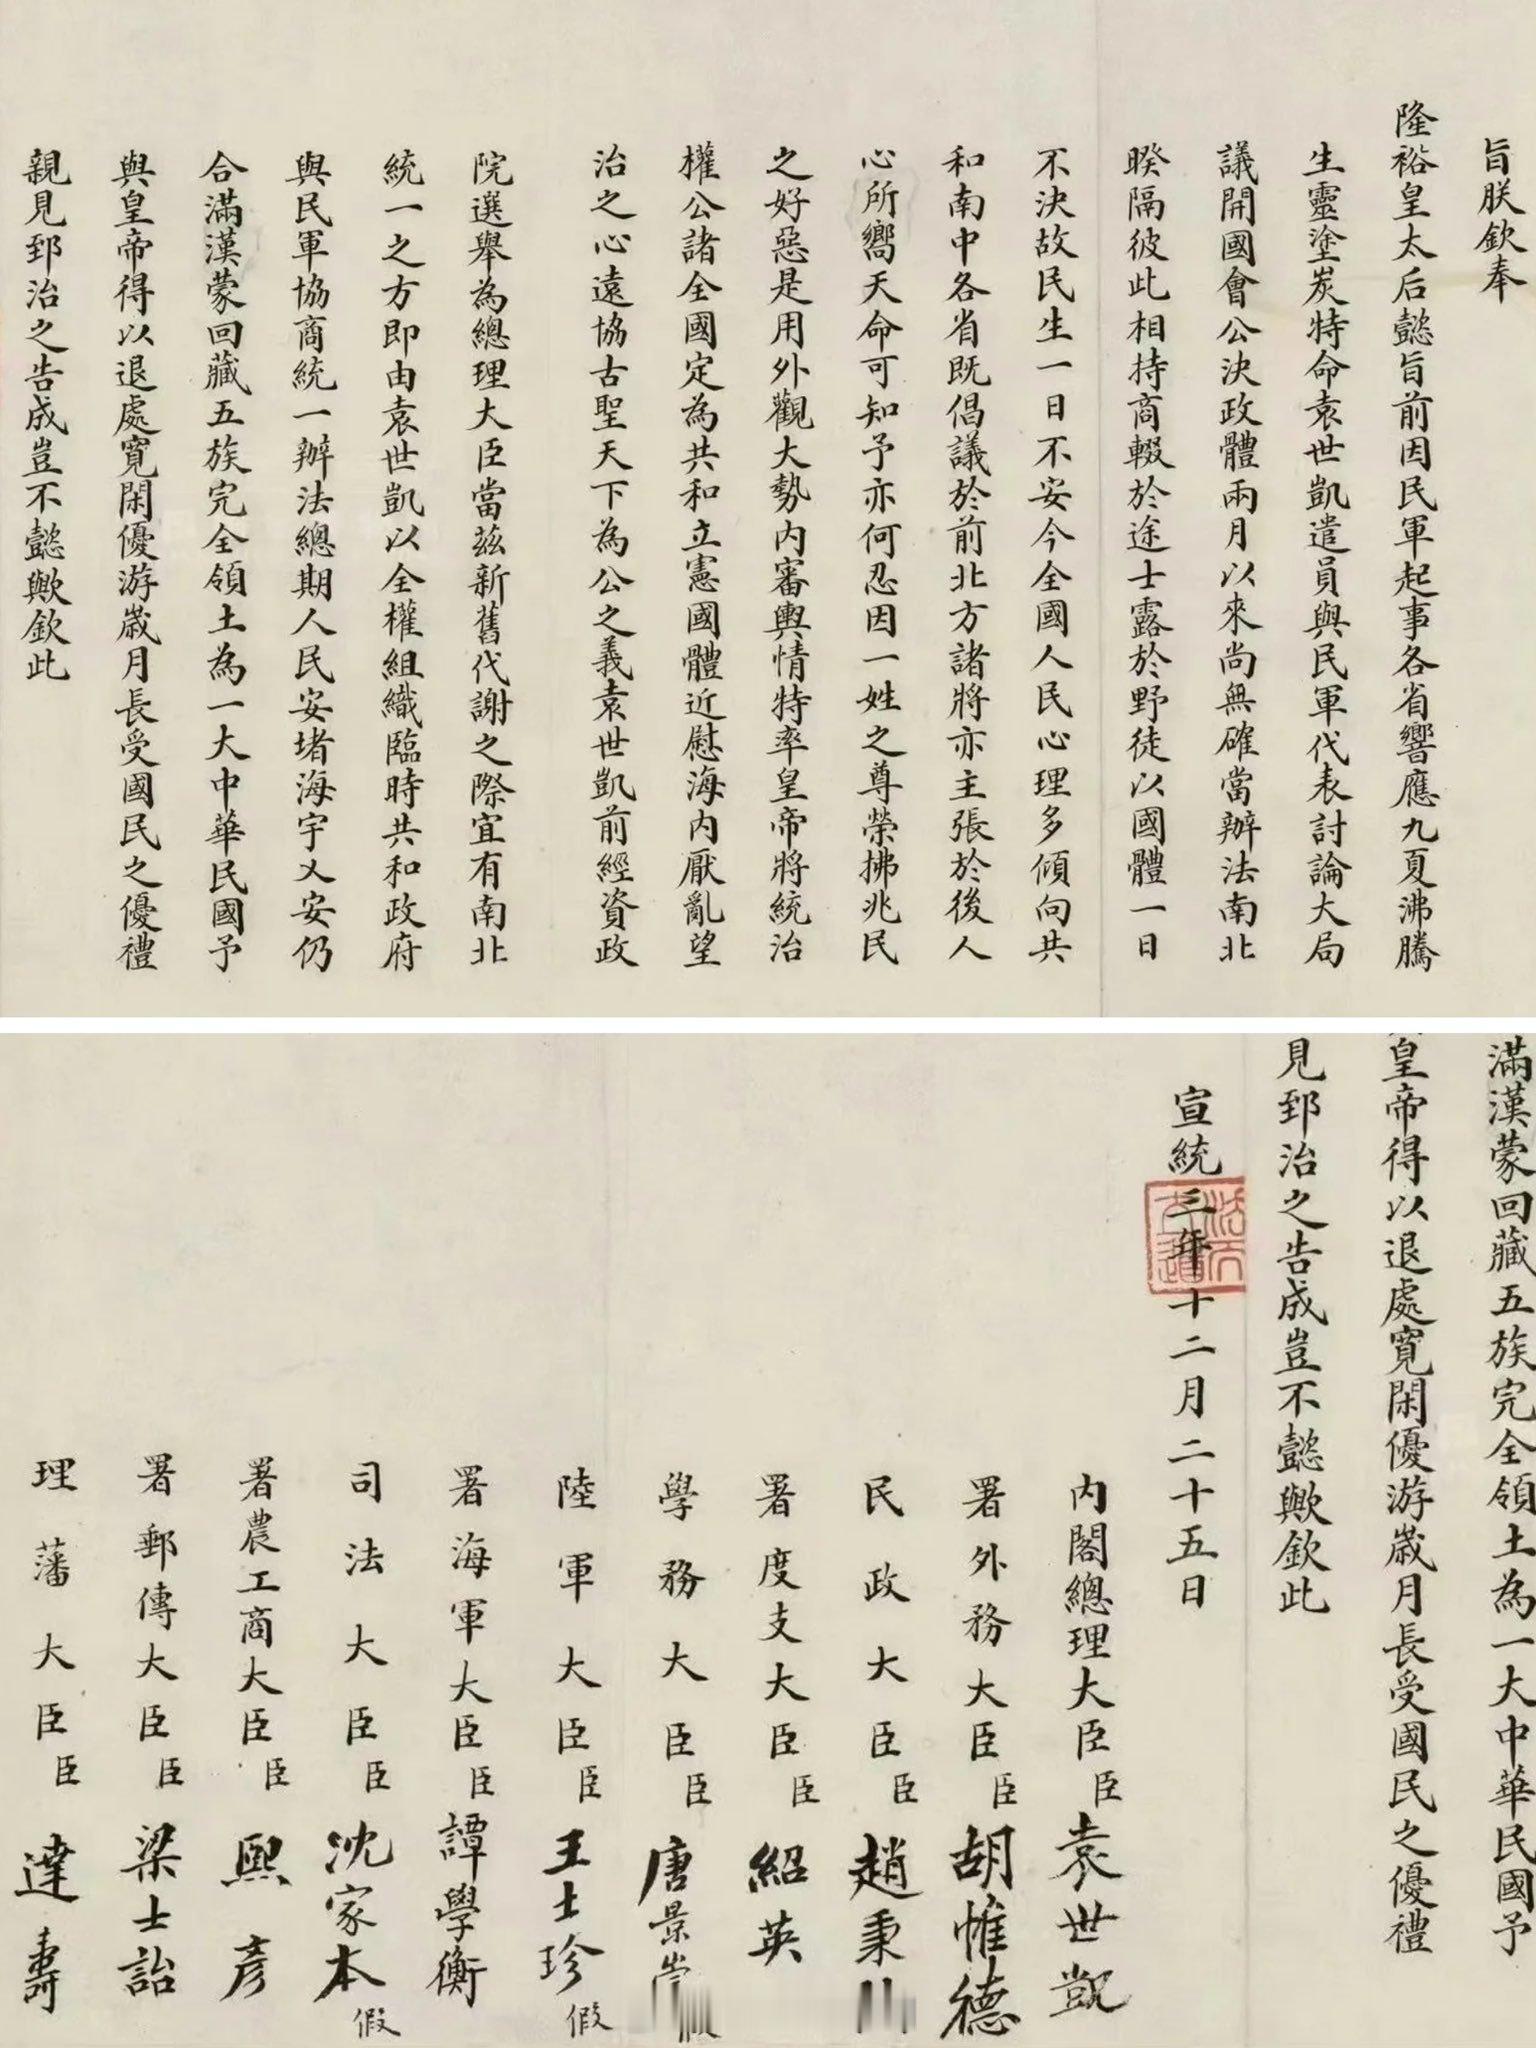 旨朕欽奉
隆裕皇太后懿旨前因民軍起事各省響應九夏沸騰
生靈塗炭特命袁世凱遣員與民軍代表討論大局
議開國會公決政體兩月以來尚無確當辦法南北
暌隔彼此相持商輟於途士露於野徒以國體一日
不決故民生一日不安今全國人民心理多傾向共
和南中各省既倡議於前北方諸將亦主張於後人
心所嚮天命可知予亦何忍因一姓之尊榮拂兆民
之好惡是用外觀大勢內審輿情特率皇帝將統治
權公諸全國定為共和立憲國體近慰海內厭亂望
治之心遠協古聖天下為公之義袁世凱前經資政
院選舉為總理大臣當茲新舊代謝之際宜有南北
統一之方即由袁世凱以全權組織臨時共和政府
與民軍協商統一辦法總期人民安堵海宇乂安仍
合滿漢蒙回藏五族完全領土為一大中華民國予
與皇帝得以退處寬閑優游歲月長受國民之優禮
親見郅治之告成豈不懿歟欽此
滿漢蒙回藏五族完全領土為一大中華民國予
皇帝得以退處寬閑優游歲月長受國民之優禮
見郅治之告成豈不懿歟欽此
宣統三年十二月二十五日
內閣總理大臣臣袁世凱
署外務大臣臣胡惟德
民政大臣臣趙秉
署度支大臣臣紹英
學務大臣臣唐景崇
陸軍大臣臣王士珍假
署海軍大臣臣譚學衡
司法大臣臣沈家本假
署農工商大臣臣熙彥
署郵傳大臣臣梁士詒
理藩大臣臣達壽